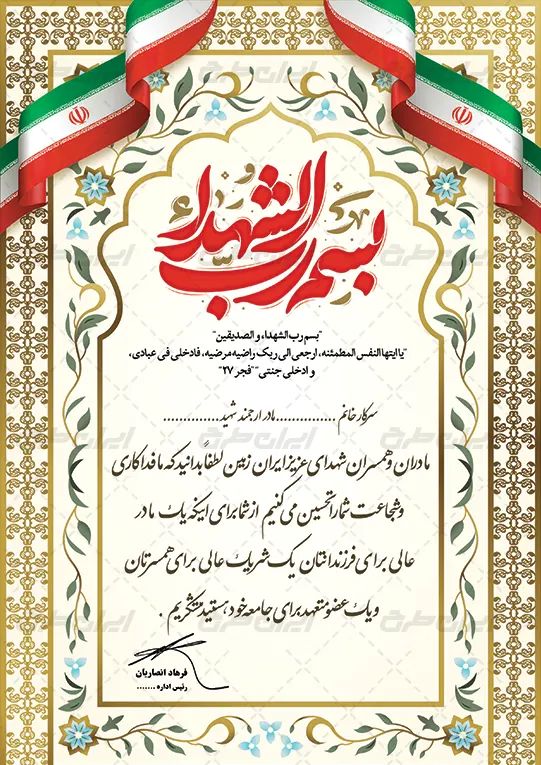 بسم رب الشهداء
"بسم رب الشهداء و الصدیقین"
"یا ایتها النفس المطمئنه، ارجعی الی ربک راضیه مرضیه، فادخلی فی عبادی،
و ادخلی جنتی" "فجر ۲۷"
سرکار خانم ............... مادر ارجمند شهید ..............
مادران و همسران شهدای عزیز ایران زمین لطفاً بدانید که ما فداکاری
و شجاعت شما را تحسین می کنیم از شما برای اینکه یک مادر
عالی برای فرزندانتان یک شریک عالی برای همسرتان
و یک عضو متعهد برای جامعه خود هستید متشکریم .
فرهاد انصاریان
رئیس اداره .......
ایران طرح